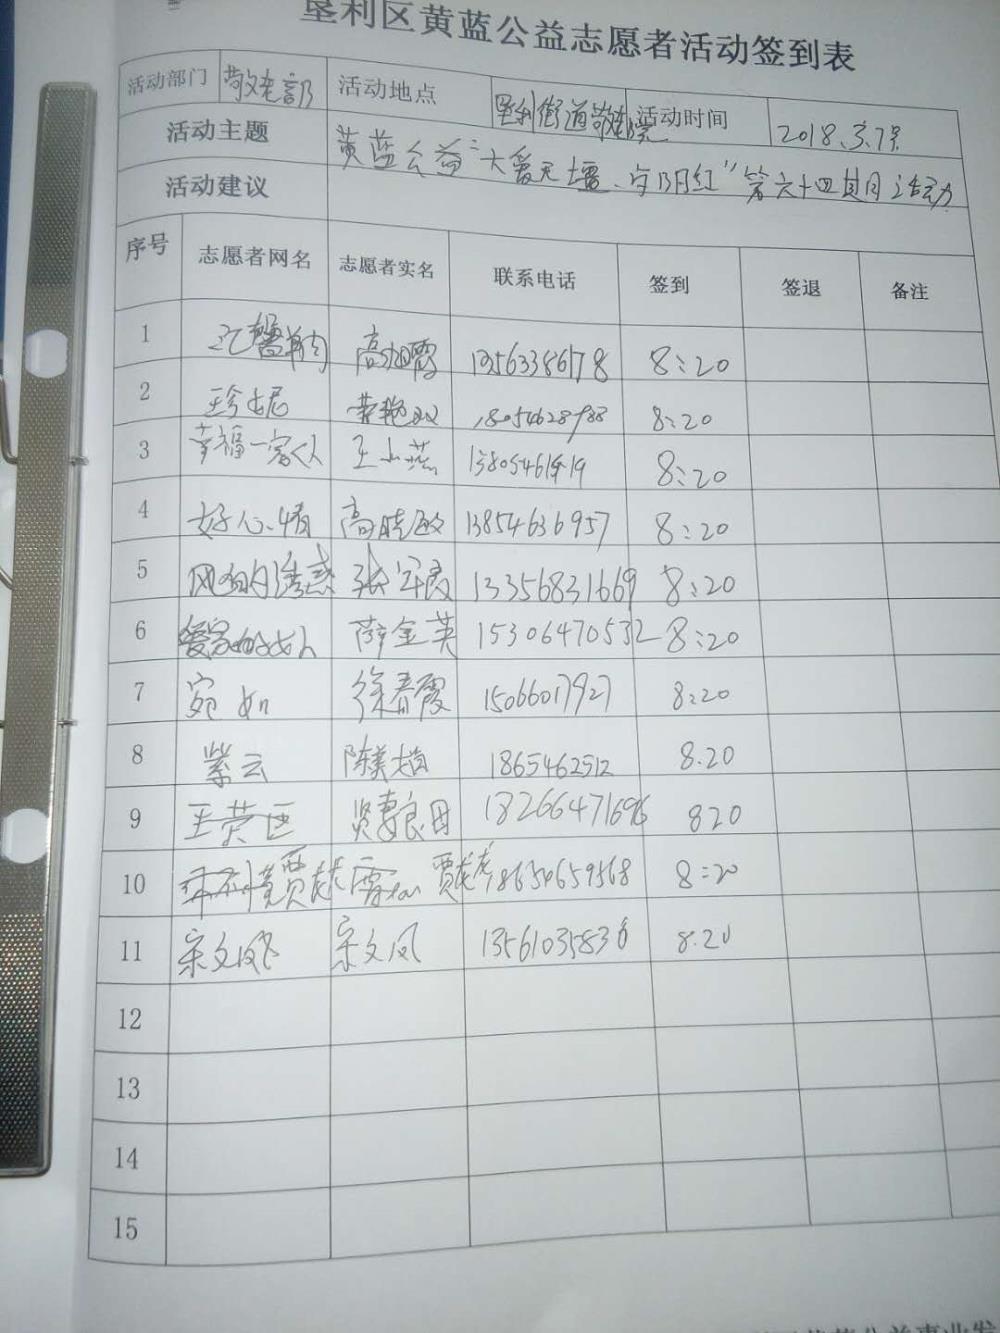 垦利区黄蓝公益志愿者活动签到表
活动部门 敬老部 活动地点 垦利街道敬老院 活动时间 2018.3.7号
活动主题 黄蓝公益"大爱无疆、夕阳红"第六十四期月活动
活动建议
序号 志愿者网名 志愿者实名 联系电话 签到 签退 备注
1 13563386178 8:20
2 珍妮 18054628988 8:20
3 幸福一家人 王小燕 8:20
4 好心情 高晓敏 13854636957 8:20
5 风雨的诱惑 张军霞 13356831669 8:20
6 爱家的女人 薛金英 15306470532 8:20
7 宛如 徐春霞 15066017927 8:20
8 紫云 陈美娟 1865462512 8.20
9 王荣臣 贤妻良母 18266471696 820
10 18654659568 8:20
11 宋文凤 宋文凤 13561035836 8.20
12
13
14
15